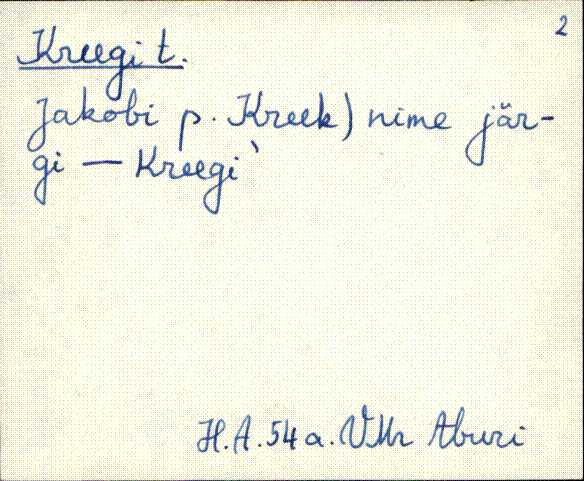 2
Kreegi t.
Jakobi p. Kreek) nime jär-
gi — Kreegi`
H.A. 54 a. VMr Aburi